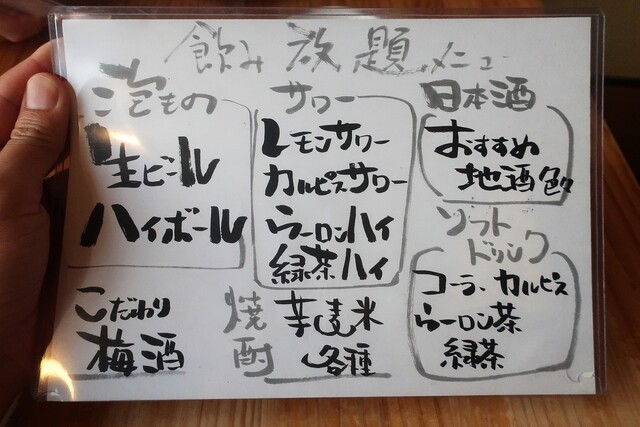 飲み放題メニュー
泡もの
生ビール
ハイボール
サワー
レモンサワー
カルピスサワー
ウーロンハイ
緑茶ハイ
日本酒
おすすめ
地酒色々
ソフト
ドリンク
コーラ、カルピス
ウーロン茶
緑茶
こだわり
梅酒
焼酎
芋麦米
各種